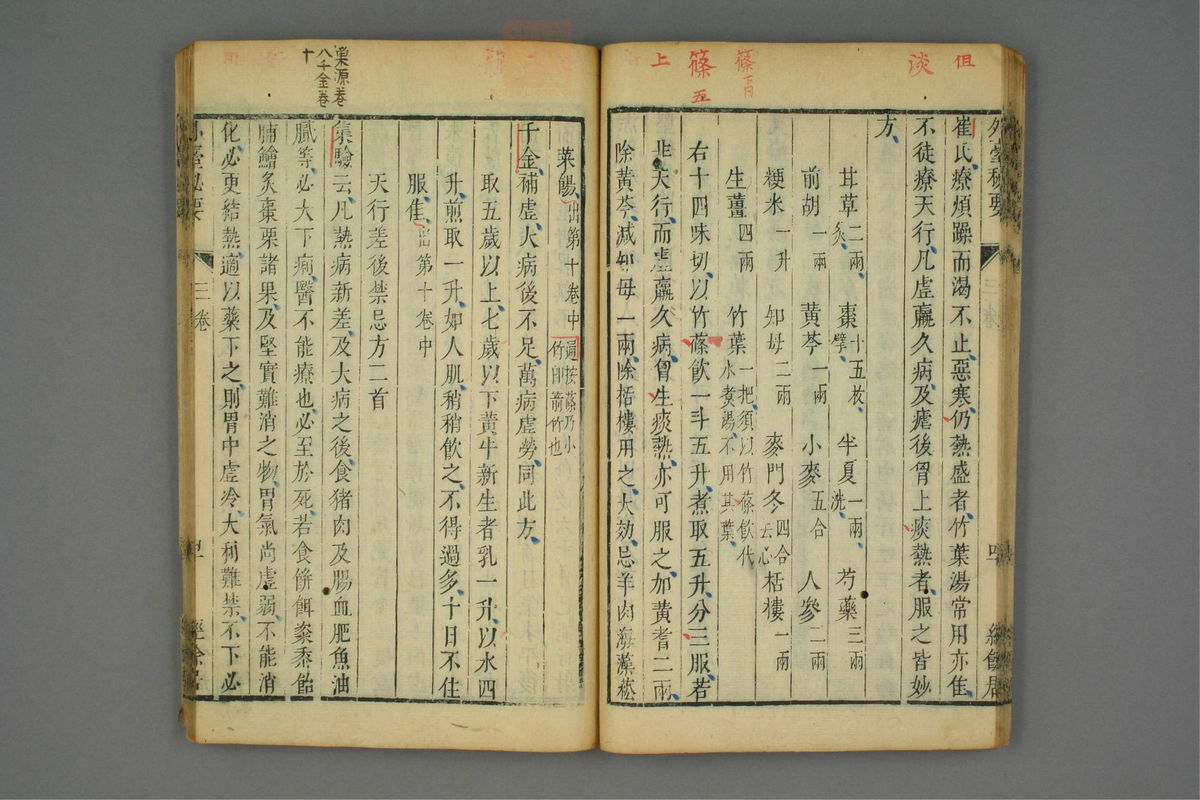 但
淡
篠
下同
篠
五
上
外臺秘要
三卷
經餘居
崔氏療煩躁而渴不止惡寒仍熱盛者竹葉湯常用亦佳
不徒療天行凡虛羸久病及瘧後胷上痰熱者服之皆妙
方
甘草二兩炙 棗十五枚擘 半夏一兩洗 芍藥三兩
前胡一兩 黃芩一兩 小麥五合 人參二兩
粳米一升 知母二兩 麥門冬四合去心 栝樓一兩
生薑四兩 竹葉一把須以竹篠飲代水煑湯不用其葉
右十四味切以竹篠飲一斗五升煮取五升分三服若
非天行而虛羸久病胷生痰熱亦可服之加黃耆二兩
除黃芩減知母一兩除栝樓用之大効忌羊肉海藻菘
菜餳出第十卷中 通按篠乃小竹卽箭竹也
千金補虛大病後不足萬病虛勞同此方
取五歲以上七歲以下黃牛新生者乳一升以水四
升煎取一升如人肌稍稍飲之不得過多十日不住
服佳出第十卷中
天行差後禁忌方二首
巢源卷
八千金卷
十
集驗云凡熱病新差及大病之後食猪肉及腸血肥魚油
膩等必大下痢醫不能療也必至於死若食餅餌粢黍飴
脯鱠炙棗栗諸果及堅實難消之物胃氣尚虛弱不能消
化必更結熱適以藥下之則胃中虛冷大利難禁不下必
外臺必要
三卷
經餘居